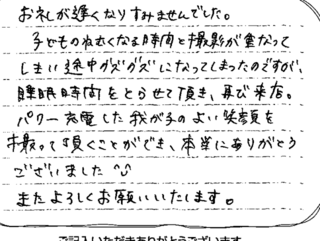 お礼が遅くなりすみませんでした。
子どものねむくなる時間と撮影が重なって
しまい途中グズグズになってしまったのですが、
睡眠時間をとらせて頂き、再び来店。
パワー充電した我が子のよい笑顔を
撮って頂くことができ、本当にありがとう
ございました^^
またよろしくお願いいたします。
ご記入いただきありがとうございます